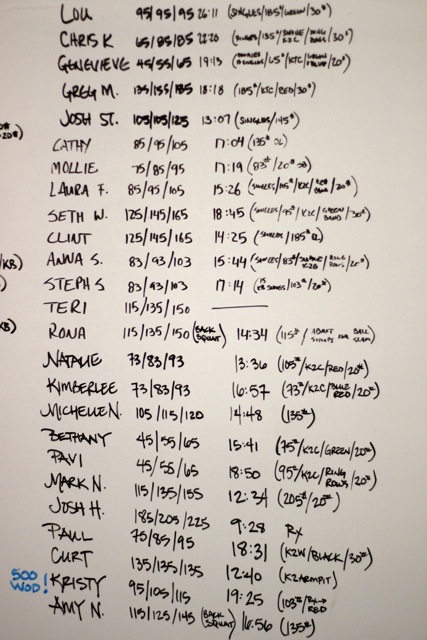 LOU 95/95/95 26:11 (SINGLES/185#/GREEN/30#)
CHRIS K 65/85/85 22:20 /135#/ K2C / /30#)
GENEVIEVE 45/55/65 19:13 /65#/KTC/ /20#)
GREG M. 135/155/185 18:18 (185#/KTC/RED/30#)
JOSH ST. 105/105/125 13:07 (SINGLES/145#)
CATHY 85/95/105 17:04 (135# DL)
MOLLIE 75/85/95 17:19 (83#/20# )
LAURA F. 85/95/105 15:26 (SINGLES/ /K2C/ /20#)
SETH W. 125/145/165 18:45 (SINGLES/95#/K2C/GREEN BAND/30#)
CLINT 125/145/165 14:25 (SINGLES/185# DL)
ANNA S. 83/93/103 15:44 (SINGLES/83#/ K2C/RING ROWS/20#)
STEPH S 83/93/103 17:14 /103#/20#)
TERI 115/135/150
RONA 115/135/150 (BACK SQUAT) 14:34 (115#/ ABMAT SITUPS FOR BALL SLAM)
NATALIE 73/83/93 13:36 (105#/K2C/RED/20#)
KIMBERLEE 73/83/93 16:57 (73#/K2C/BLUE RED/20#)
MICHELLE N. 105/115/120 14:48 (135#)
BETHANY 45/55/65 15:41 (75#/K2C/GREEN/20#)
PAVI 45/55/65 18:50 (95#/K2C/RING ROWS/20#)
MARK N. 115/135/155 12:34 (205#/20#)
JOSH H. 185/205/225 9:28 RX
PAUL 75/85/95 18:31 (K2W/BLACK/30#)
CURT 135/135/135 12:40 (K2ARMPIT)
500 WOD! KRISTY 95/105/115 19:25 (103#/ RED
AMY N. 115/125/145 (BACK SQUAT) 16:56 (135#)